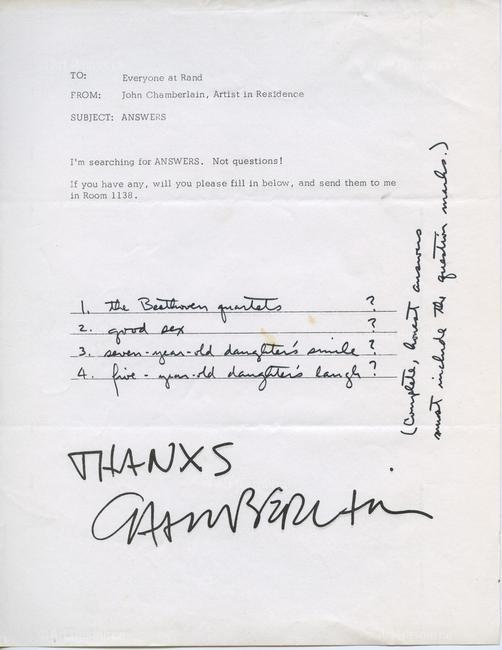 TO: Everyone at Rand
FROM: John Chamberlain, Artist in Residence
SUBJECT: ANSWERS
I'm searching for ANSWERS. Not questions!
If you have any, will you please fill in below, and send them to me
in Room 1138.
1. the Beethoven quartets ?
2. good sex ?
3. seven-year-old daughter's smile ?
4. five-year-old daughter's laugh ?
(Complete, honest answers
must include the question marks.)
THANXS
CHAMBERLAIN